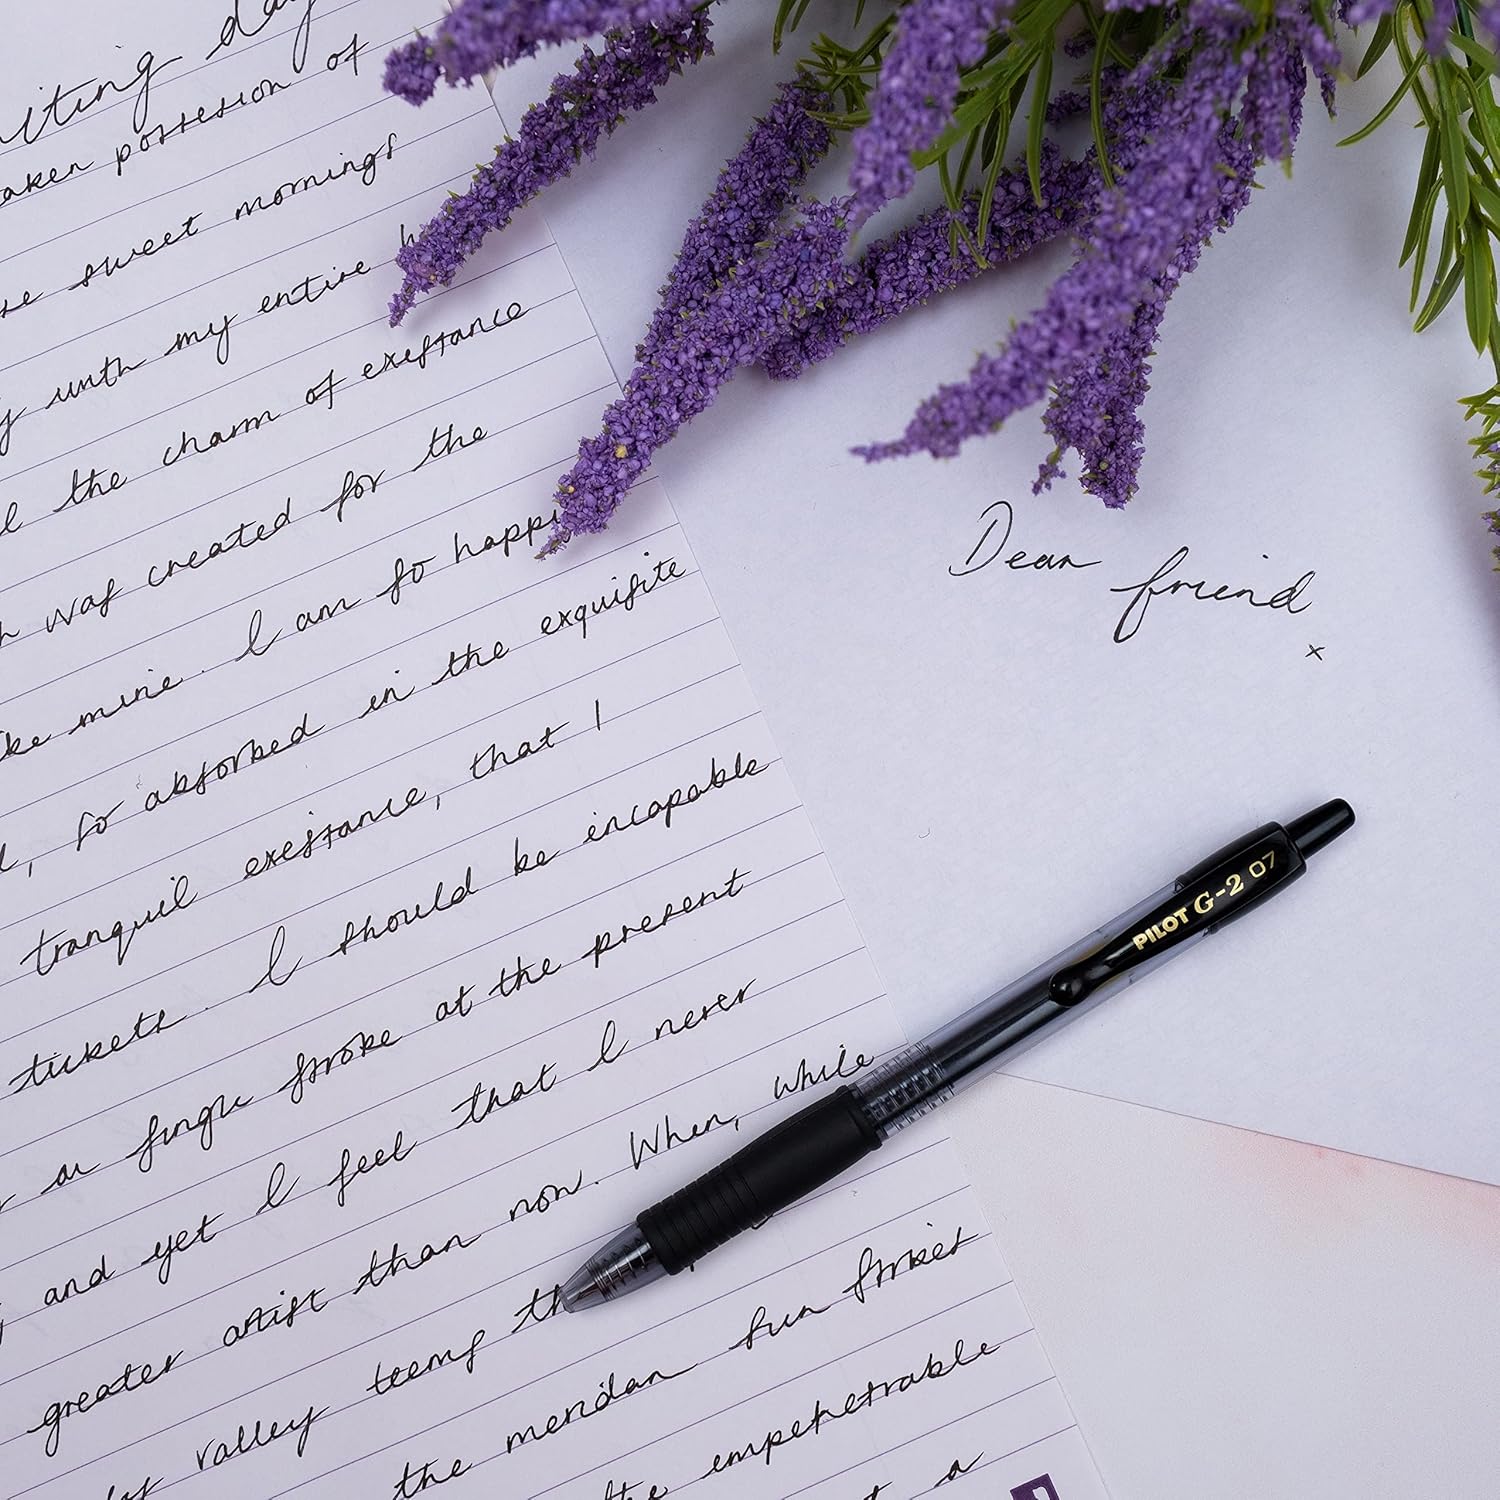 iting day
aken possession of
se sweet mornings
y with my entire h
l the charm of existance
h was created for the
ke mine. I am so happ
l, so absorbed in the exquisite
tranquil existance, that I
tickets. I should be incapable
a single stroke at the present
and yet I feel that I never
greater artist than now. When, while
valley teems th
the meridan sun strikes
the impenetrable
a
Dear friend
x
PILOT G-2 07